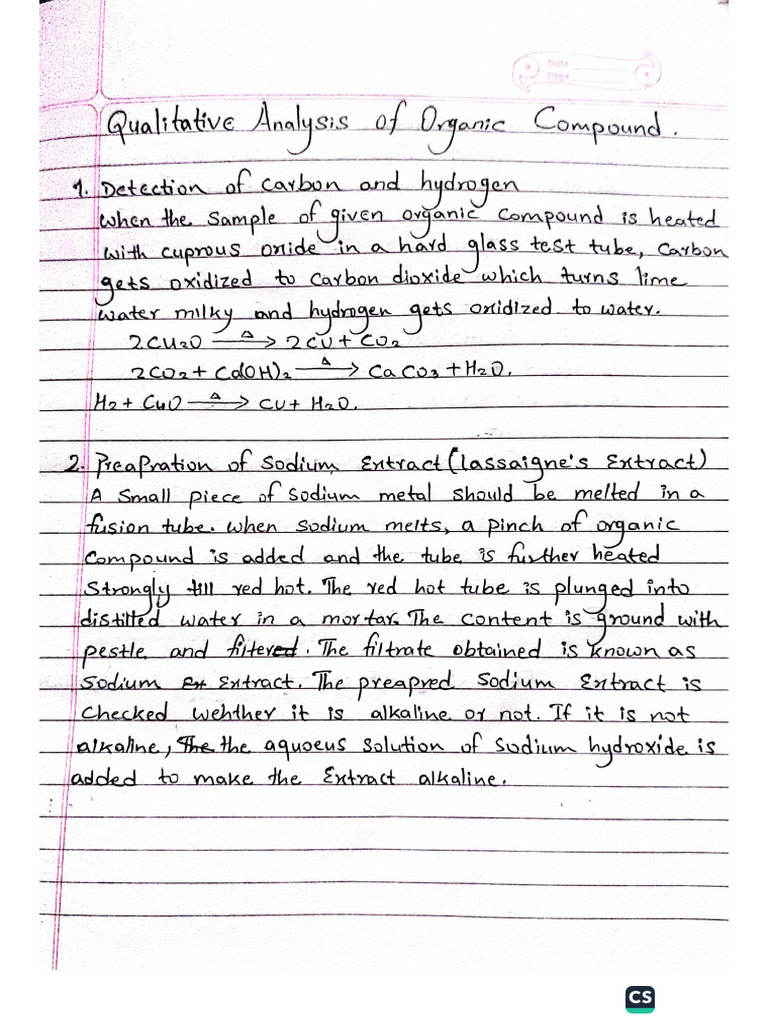 Date
Page
Qualitative Analysis of Organic Compound.
1. Detection of carbon and hydrogen
When the sample of given organic compound is heated
with cuprous oxide in a hard glass test tube, carbon
gets oxidized to carbon dioxide which turns lime
water milky and hydrogen gets oxidized to water.
2Cu2O —Δ→ 2Cu + CO2
2CO2 + Ca(OH)2 —Δ→ CaCO3 + H2O.
H2 + CuO —Δ→ Cu + H2O.
2. Preapration of sodium extract (lassaigne's Extract)
A small piece of sodium metal should be melted in a
fusion tube. When sodium melts, a pinch of organic
compound is added and the tube is further heated
strongly till red hot. The red hot tube is plunged into
distilted water in a mortar. The content is ground with
pestle and filtered. The filtrate obtained is known as
sodium Ex Extract. The preapred sodium Extract is
checked wehther it is alkaline or not. If it is not
alkaline, The the aquoeus solution of sodium hydroxide is
added to make the Extract alkaline.
CS